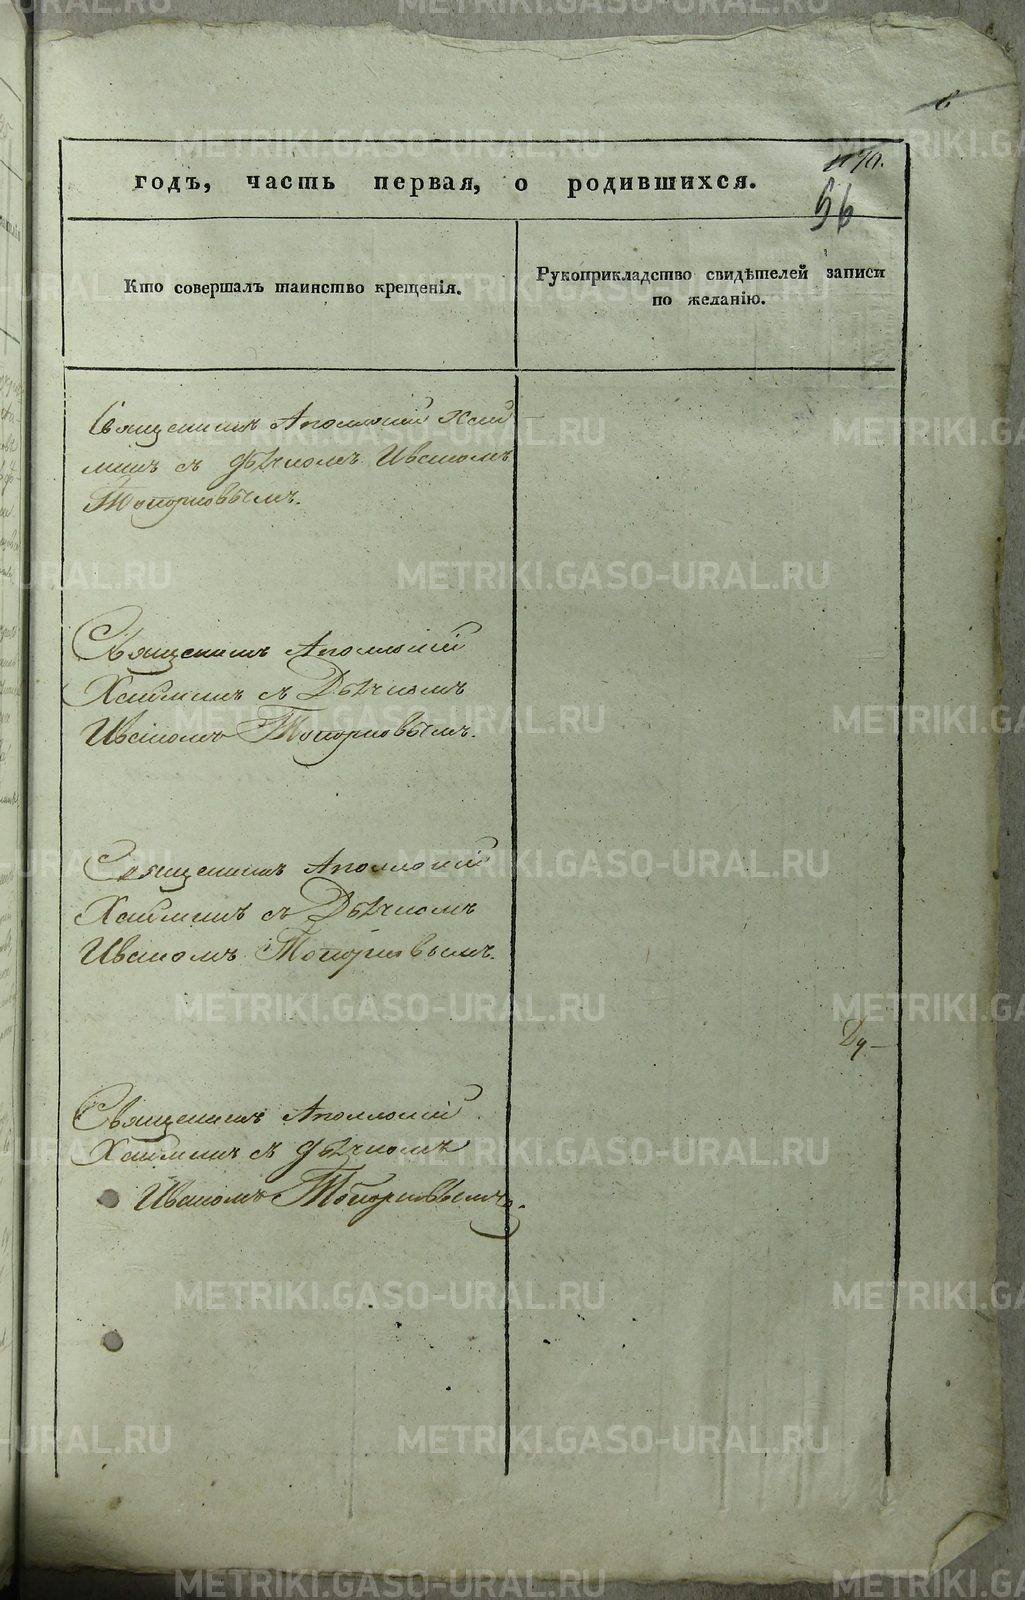 6
1170.
годъ, часть первая, о родившихся.
56
Кто совершалъ таинство крещенія.
Рукоприкладство свидѣтелей записи
по желанію.
Священникъ Аполлоній Хай
минъ съ дьячкомъ Иваномъ
Топорковымъ.
Священникъ Аполлоній
Хайминъ съ Дьячкомъ
Иваномъ Топорковымъ.
Священникъ Аполлоній
Хайминъ съ Дьячкомъ
Иваномъ Топорковымъ.
Ду-
Священникъ Аполлоній
Хайминъ съ дьячкомъ
Иваномъ Топорковымъ.
METRIKI.GASO-URAL.RU